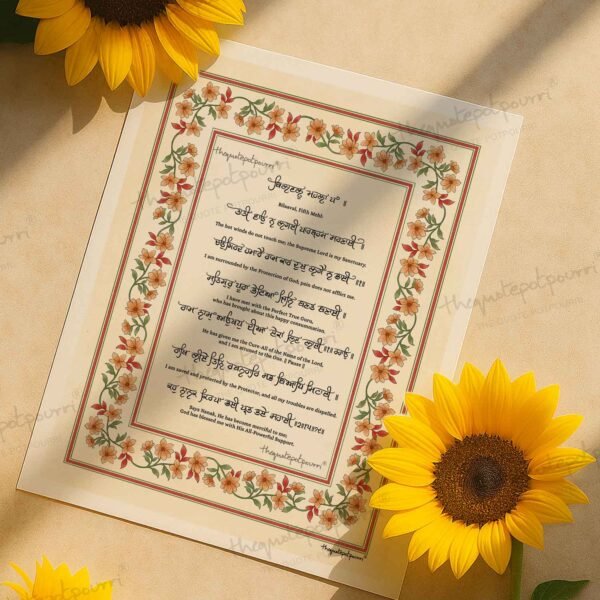 thequotepotpourri®
ਬਿਲਾਵਲੁ ਮਹਲਾ ੫ ॥
Bilaaval, Fifth Mehl:
ਤਾਤੀ ਵਾਉ ਨ ਲਗਈ ਪਾਰਬ੍ਰਹਮ ਸਰਣਾਈ ॥
The has winds do not touch me; the Supreme Lord is my Sanctuary.
ਚਉਗਿਰਦ ਹਮਾਰੈ ਰਾਮ ਕਾਰ ਦੁਖੁ ਲਗੈ ਨ ਭਾਈ ॥੧॥
I am surrounded by the Protection of God, pain does not afflict me.
ਸਤਿਗੁਰੁ ਪੂਰਾ ਭੇਟਿਆ ਜਿਨਿ ਬਣਤ ਬਣਾਈ
I have met with the Perfect True Guru,
who has brought about this happy consummation.
ਰਾਮ ਨਾਮੁ ਅਉਖਧੁ ਦੀਆ ਏਕਾ ਲਿਵ ਲਾਈ ॥੧॥ ਰਹਾਉ
He has given me the Cure-All of the Name of the Lord,
and I am attuned to the One. || Pause ||
ਰਾਖਿ ਲੀਏ ਤਿਨਿ ਰਖਨਹਾਰਿ ਸਭ ਬਿਆਧਿ ਮਿਟਾਈ ॥
I am saved and protected by the Protector, and all my troubles are dispelled.
ਕਹੁ ਨਾਨਕ ਕਿਰਪਾ ਭਈ ਪ੍ਰਭ ਭਏ ਸਹਾਈ ॥੨॥੧੫॥੭੯॥
Says Nanak, He has become merciful to me;
God has blessed me with His All-Powerful Support.
thequotepotpourri®
thequotepotpourri®